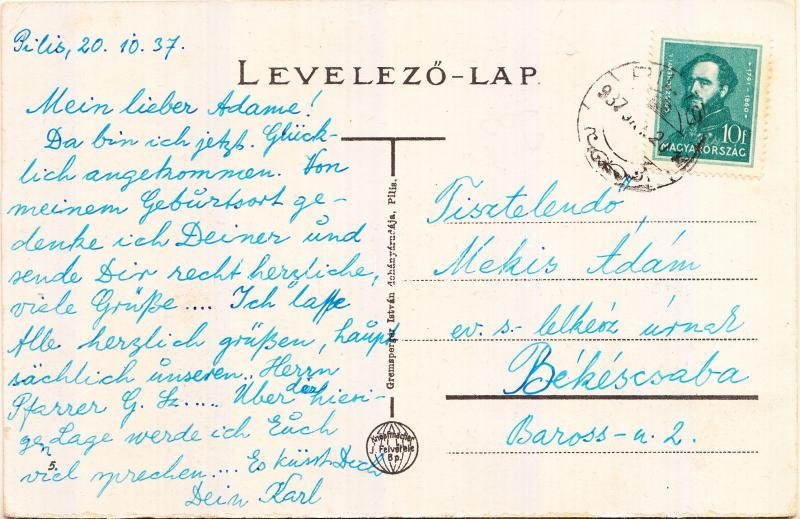 Pilis, 20. 10. 37.
LEVELEZŐ-LAP
Mein lieber Adame!
Da bin ich jetzt. Glück-
lich angekommen. Von
meinem Gebŭrtsort ge-
denke ich Deiner ŭnd
sende Dir recht herzliche,
viele Grüße .... Ich laße
Alle herzlich grüßen, haŭpt
sächlich ŭnseren.. Herrn
Pfarrer G. Sz..... Über die hiesi-
gen Lage werde ich Eŭch
viel sprechen... Es küsst Dich
Dein Karl
5.
Gremsperger István dohányárudája, Pilis.
Knapfmacher
J.
Felvétele
Bp.
SZÉCHENYI I.
1791-1860
10f
MAGYARORSZÁG
937
Tisztelendő,
Mekis Ádám
ev. s.-lelkész úrnak
Békéscsaba
Baross-u. 2.